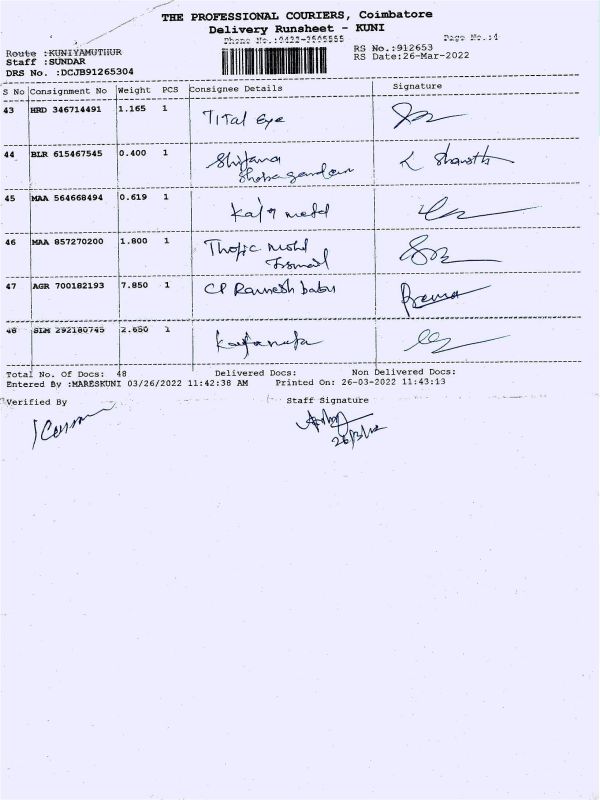 THE PROFESSIONAL COURIERS, Coimbatore
Delivery Runsheet - KUNI
Phone No.:0422-2505555
Page No.:4
Route :KUNIYAMUTHUR
Staff :SUNDAR
DRS No. :DCJB91265304
RS No.:912653
RS Date:26-Mar-2022
S No Consignment No Weight PCS Consignee Details Signature
43 HRD 346714491 1.165 1 Tital Eye
44 BLR 615467545 0.400 1
45 MAA 564668494 0.619 1
46 MAA 857270200 1.800 1
47 AGR 700182193 7.850 1 CP Ramesh babu
48 SLM 292180745 2.650 1
Total No. Of Docs: 48 Delivered Docs: Non Delivered Docs:
Entered By :MARESKUNI 03/26/2022 11:42:38 AM Printed On: 26-03-2022 11:43:13
Verified By Staff Signature